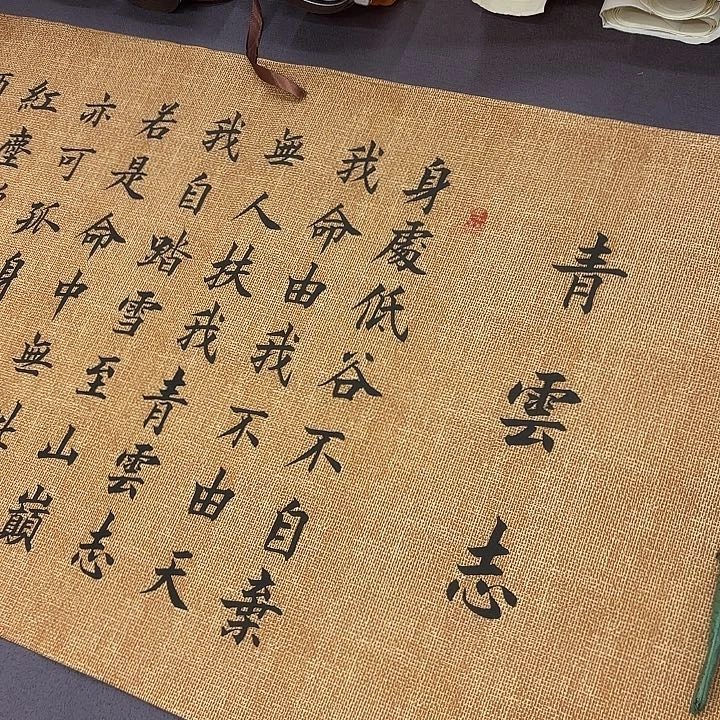 青雲志
身處低谷不自棄
我命由我不由天
無人扶我青雲志
我自踏雪至山巔
若是命中無此
亦可孤身
紅塵